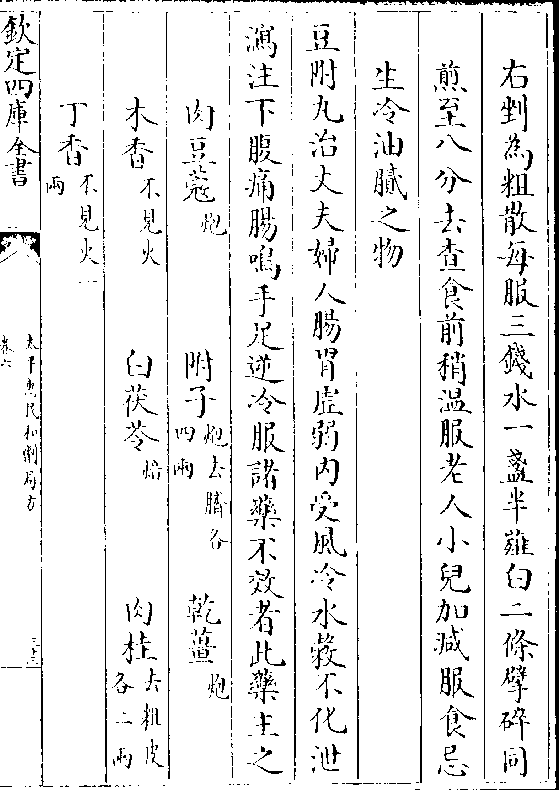 右剉為粗散每服三錢水一盞半薤白二條擘碎同
煎至八分去查食前稍温服老人小兒加減服食忌
生冷油膩之物
豆附丸治丈夫婦人腸胃虚弱内受風冷水穀不化泄
瀉注下腹痛腸鳴手足逆冷服諸藥不效者此藥主之
肉豆蔻炮 附子炮去臍各四兩 乾薑炮
木香不見火 白茯苓焙 肉桂去粗皮各二兩
丁香不見火一兩
欽定四庫全書
太平惠民和劑局方
卷六
三十三